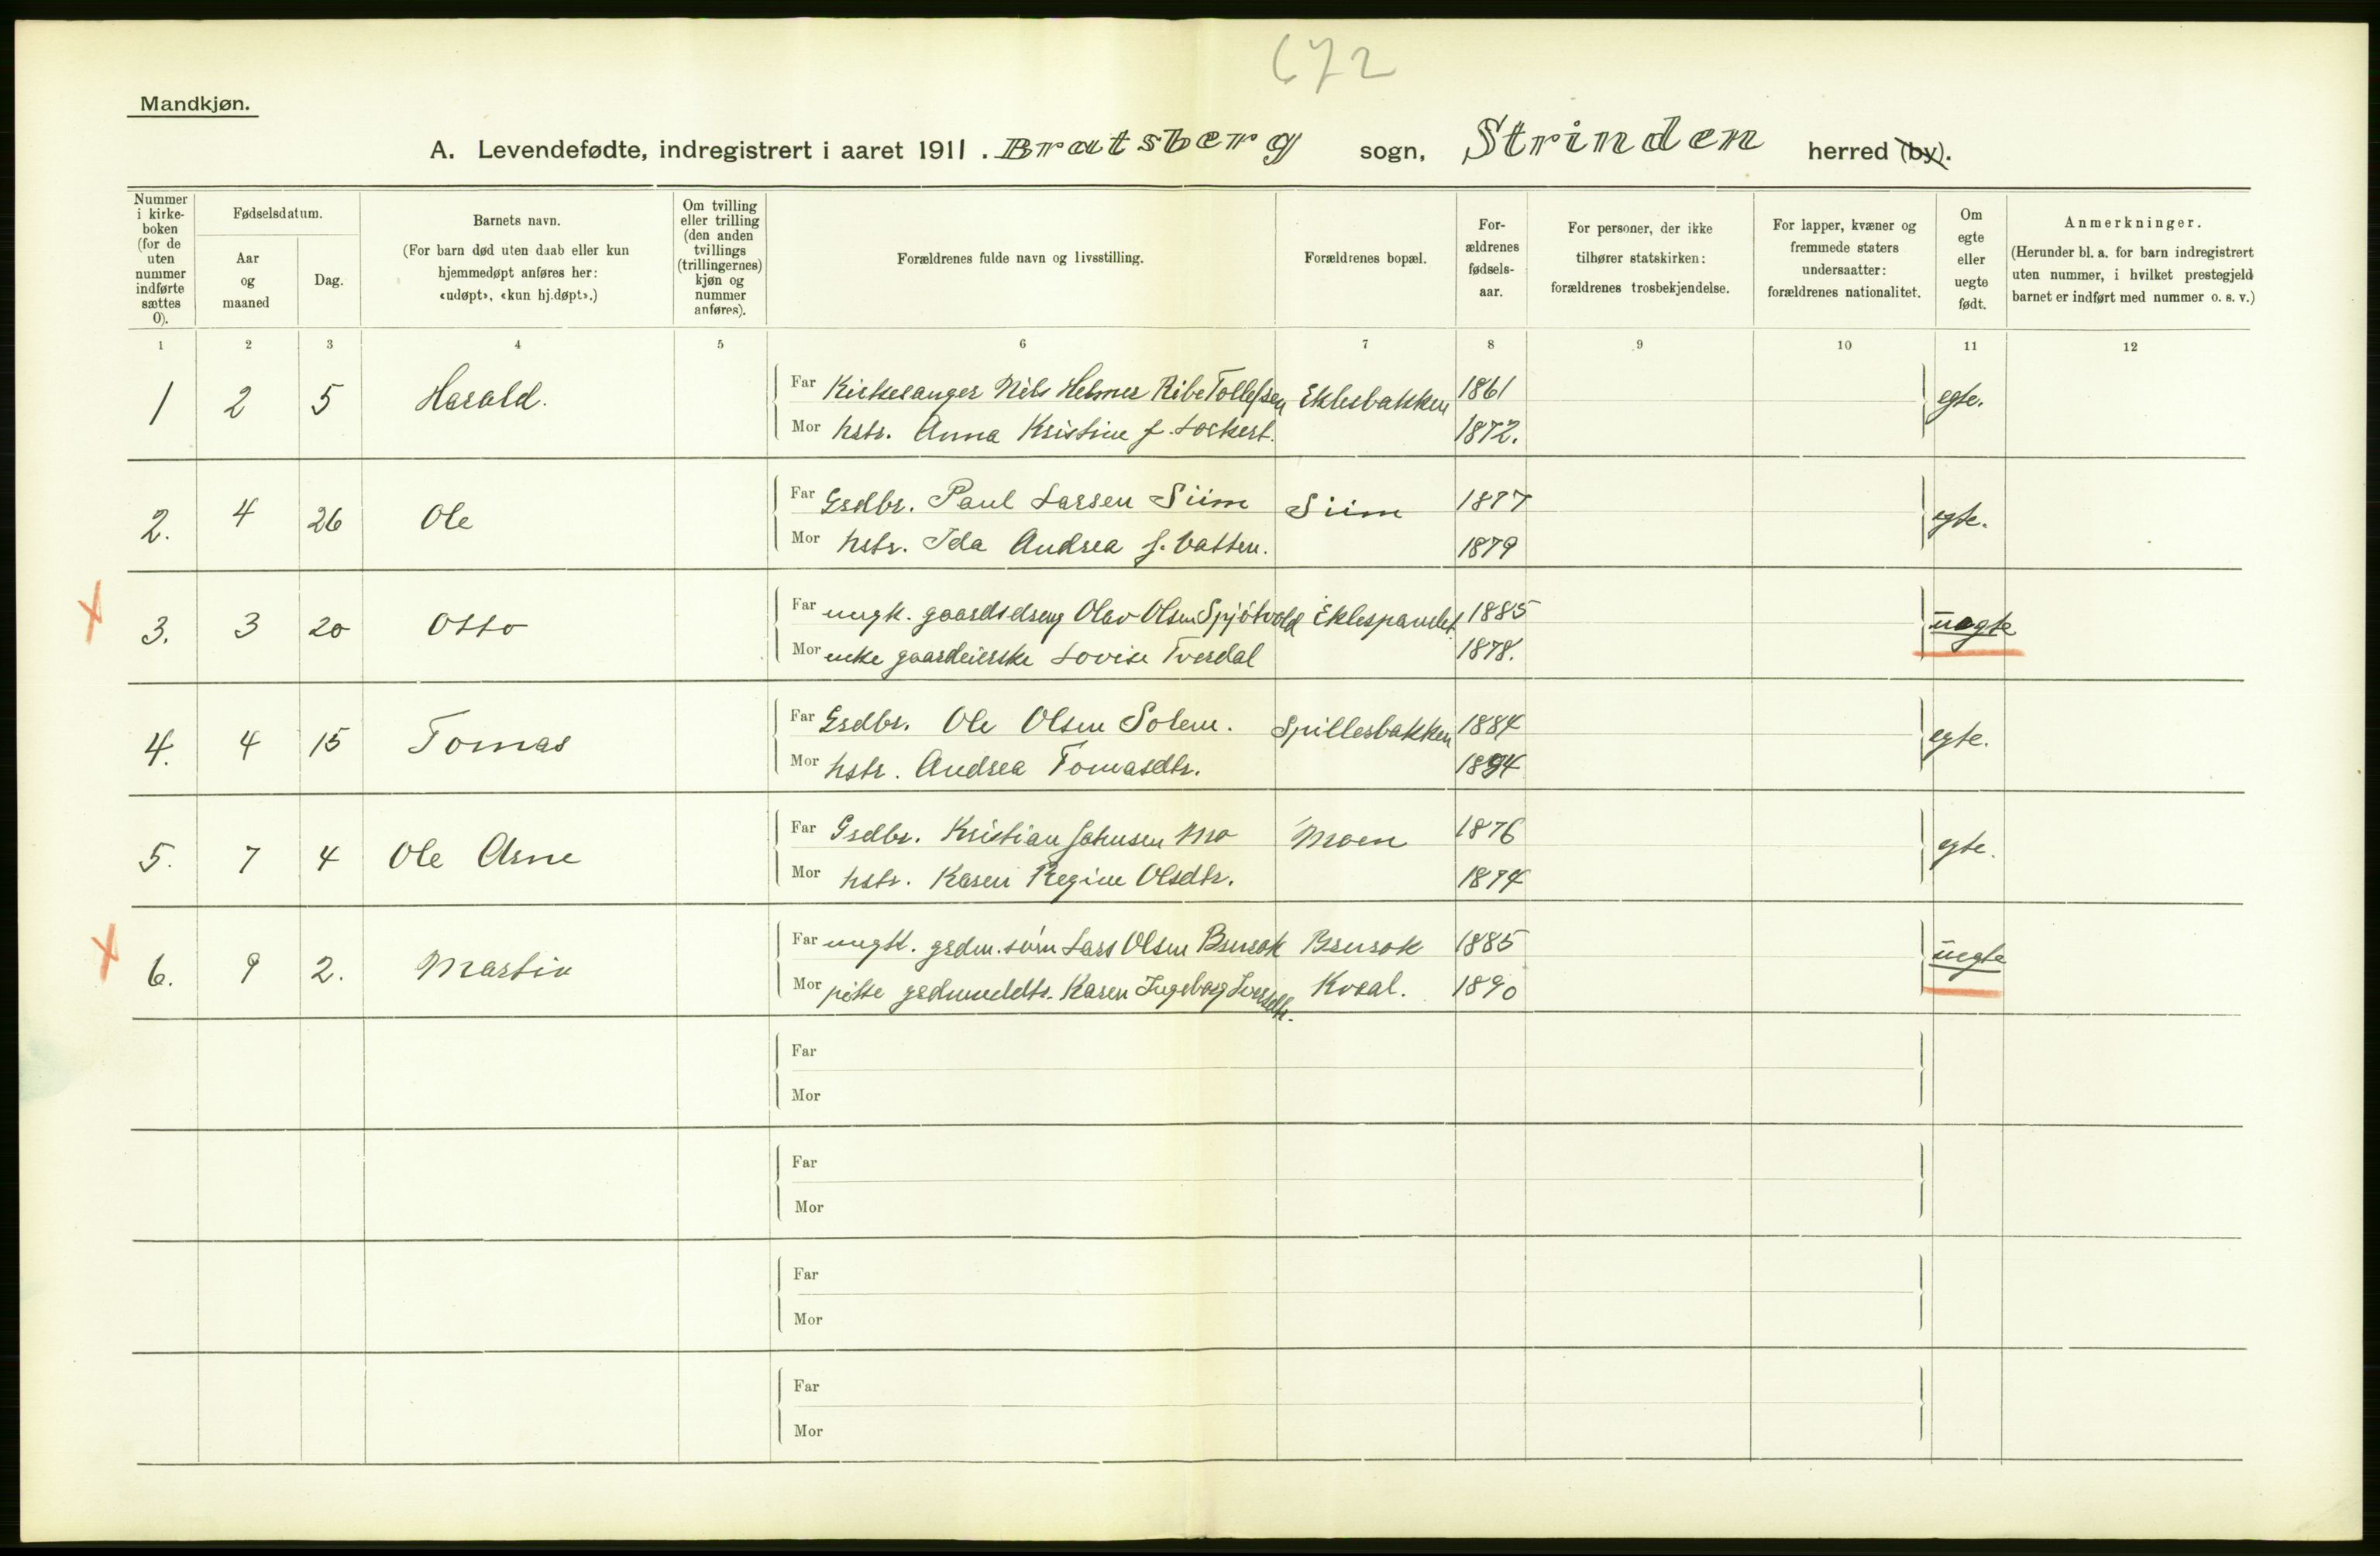 672
Mandkjøn.
A. Levendefødte, indregistrert i aaret 1911. Bratsberg sogn, Strinden herred (by).
Nummer i kirke-boken (for de uten nummer indførte sættes 0).
Fødselsdatum.
Aar og maaned
Dag.
Barnets navn.
(For barn død uten daab eller kun hjemmedøpt anføres her: «udøpt», «kun hj.døpt».)
Om tvilling eller trilling (den anden tvillings (trillingernes) kjøn og nummer anføres).
Forældrenes fulde navn og livsstilling.
Forældrenes bopæl.
For-ældrenes fødsels-aar.
For personer, der ikke tilhører statskirken: forældrenes trosbekjendelse.
For lapper, kvæner og fremmede staters undersaatter: forældrenes nationalitet.
Om egte eller uegte født.
Anmerkninger.
(Herunder bl. a. for barn indregistrert uten nummer, i hvilket prestegjeld barnet er indført med nummer o. s. v.)
1 2 3 4 5 6 7 8 9 10 11 12
1 2 5 Harald. Far Kirkesanger Nils Helmer Ribe Tollefsen Eklesbakken 1861 egte.
Mor hstr. Anna Kristine f. Lockert. 1872.
2. 4 26 Ole Far Grdbr. Paul Larsen Siim Siim 1877 egte.
Mor hstr. Ida Andrea f. Vatten. 1879
3. 3 20 Otto Far ungk. gaardsdreng Olav Olsen Spjøtvold Eklespandet 1885 uegte
Mor enke gaardeierske Lovise Tverdal 1878.
4. 4 15 Tomas Far Grdbr. Ole Olsen Solem. Spillesbakken 1884 egte.
Mor hstr. Andrea Tomasdtr. 1884
5. 7 4 Ole Arne Far Grdbr. Kristian Johnsen Mo Moen 1876 egte.
Mor hstr. Karen Regine Olsdtr. 1874
6. 9 2. Martin Far ungk. grdm. søn Lars Olsen Brurok Brurok 1885 uegte
Mor pike grdmanddtr. Karen Ingeborg Kvaal. 1890
Far
Mor
Far
Mor
Far
Mor
Far
Mor